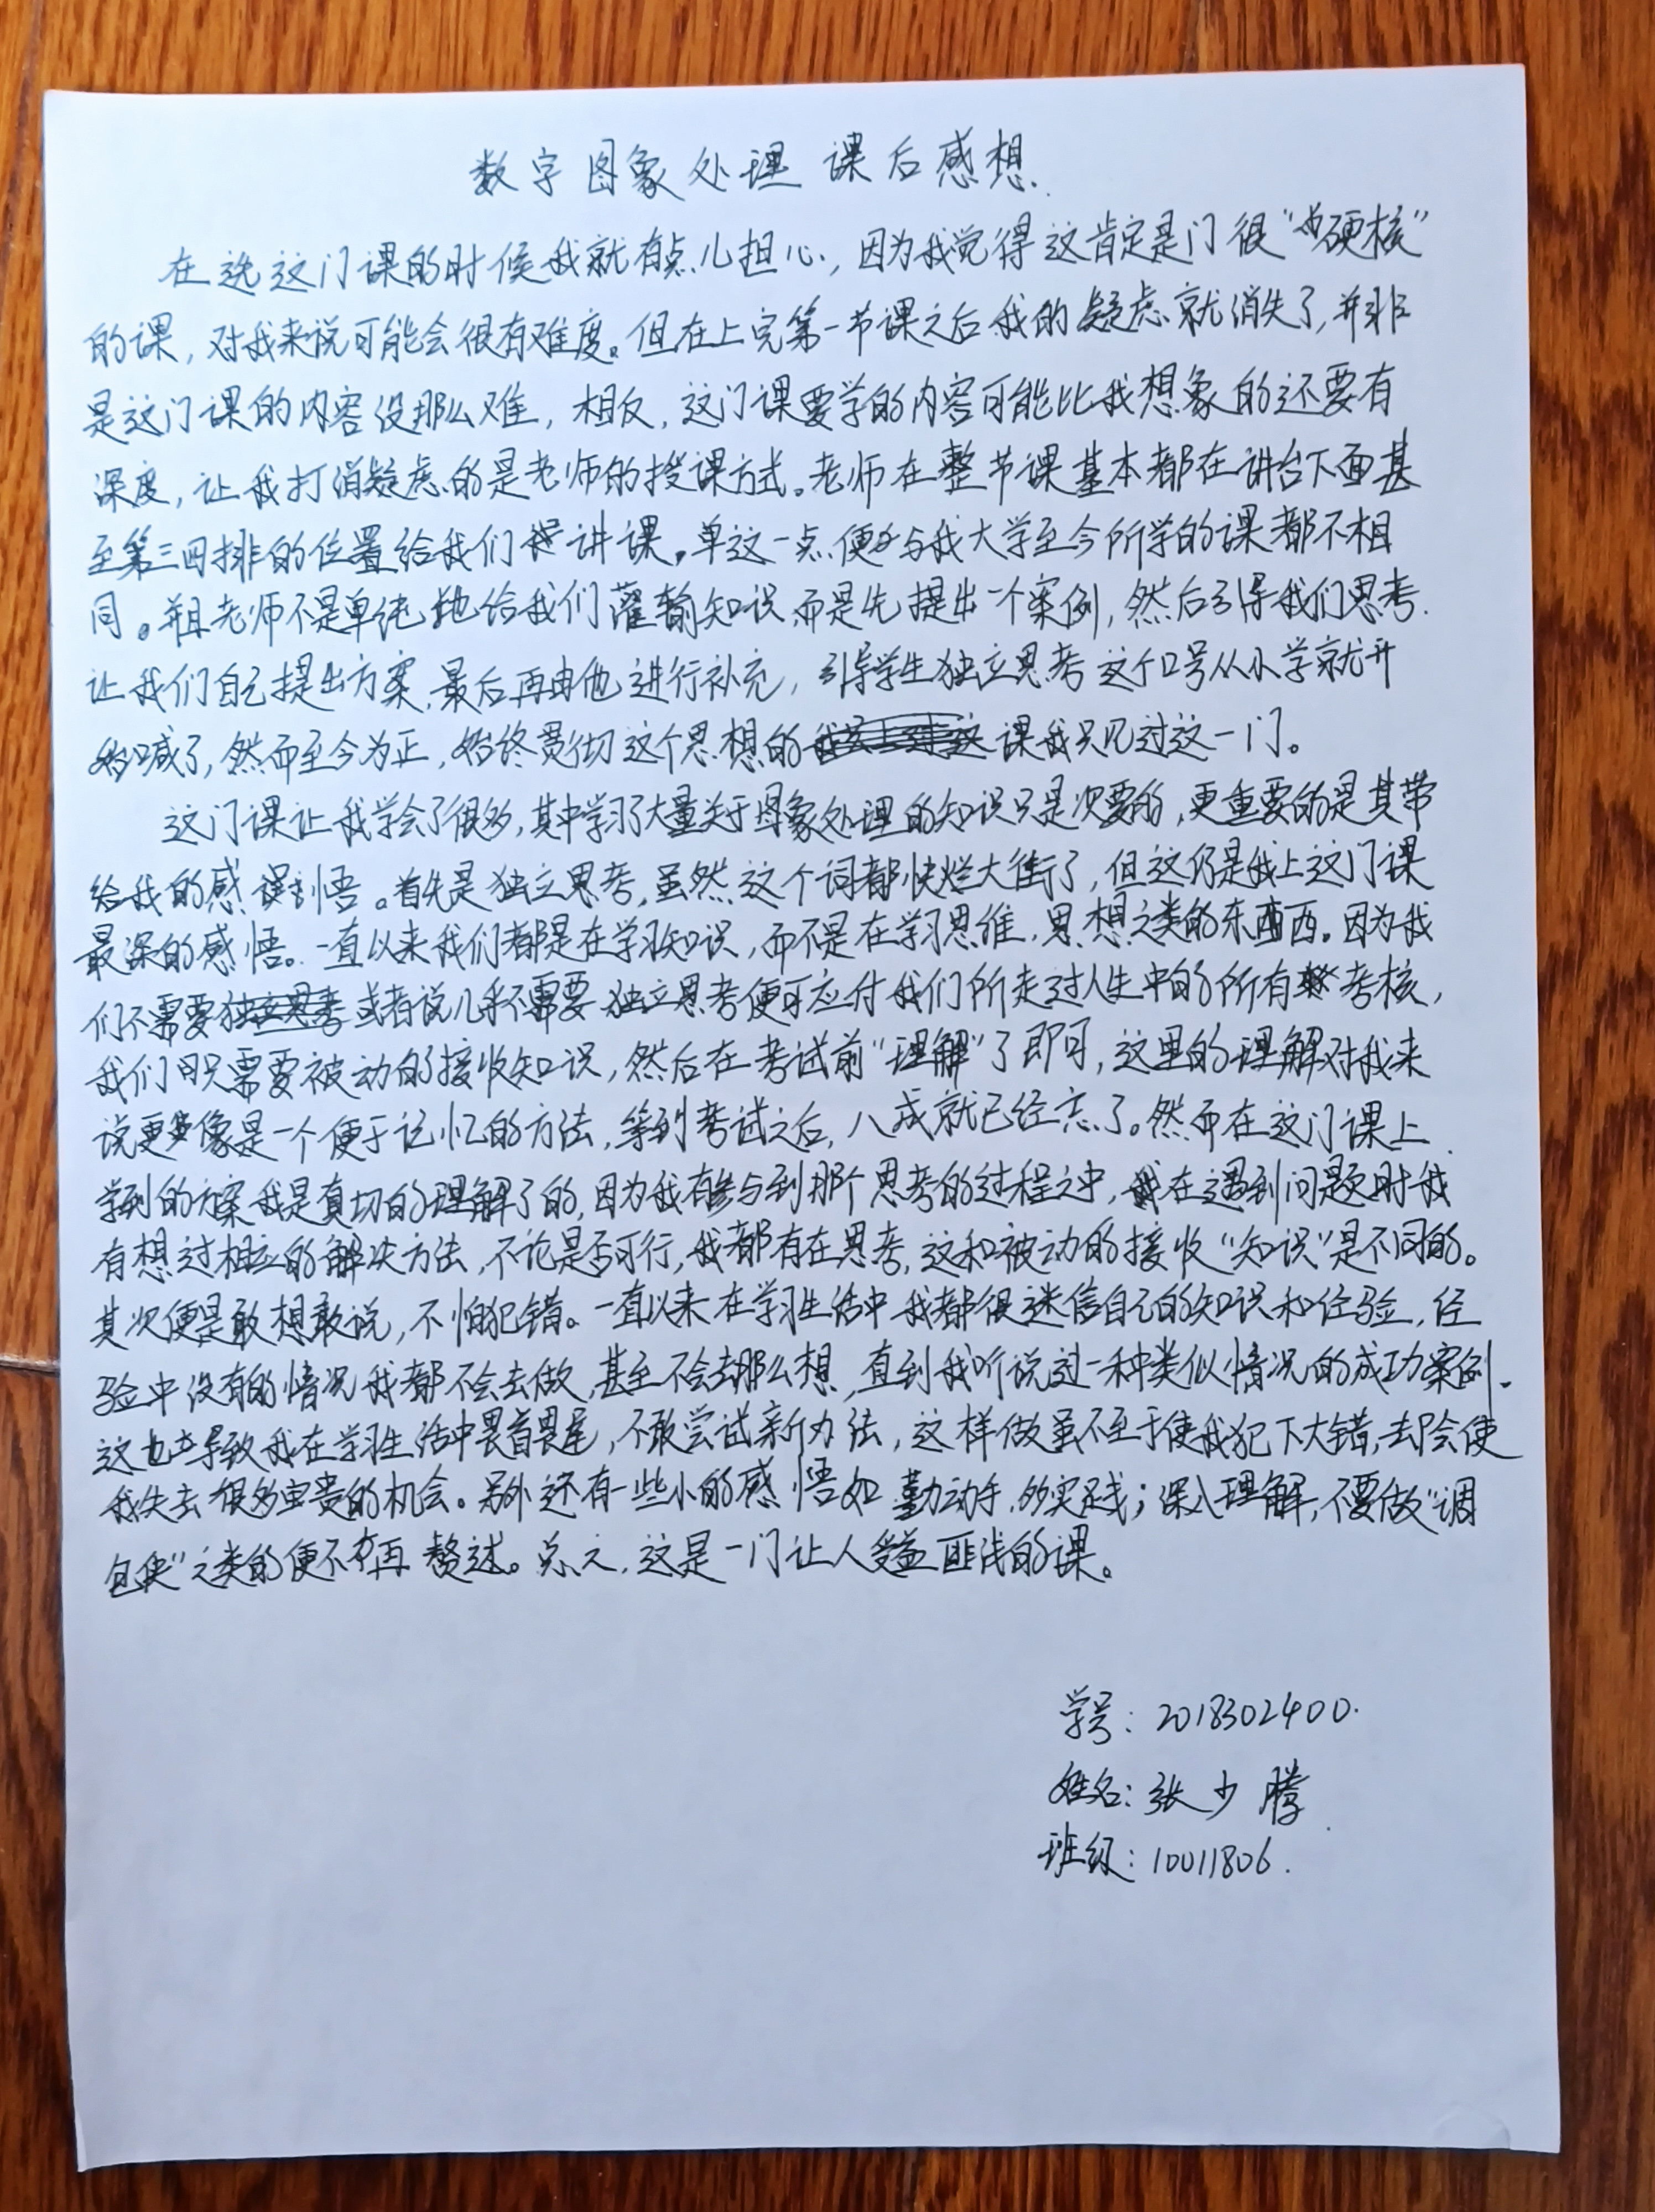 数字图象处理 课后感想.
在选这门课的时候我就有点儿担心，因为我觉得这肯定是门很“硬核”
的课，对我来说可能会很有难度。但在上完第一节课之后我的疑虑就消失了，并非
是这门课的内容没那么难，相反，这门课要学的内容可能比我想象的还要有
深度，让我打消疑虑的是老师的授课方式。老师在整节课基本都在讲台下面甚
至第三四排的位置给我们讲课。单这一点便与我大学至今所学的课都不相
同。并且老师不是单纯地给我们灌输知识，而是先提出一个案例，然后引导我们思考.
让我们自己提出方案，最后再由他进行补充，引导学生独立思考这个口号从小学就开
始喊了，然而至今为止，始终贯彻这个思想的课我只见过这一门。
这门课让我学会了很多，其中学习了大量关于图象处理的知识只是次要的，更重要的是其带
给我的感悟。首先是独立思考，虽然这个词都快烂大街了，但这仍是我上这门课
最深的感悟。一直以来我们都是在学习知识，而不是在学习思维，思想之类的东西。因为我
们不需要或者说几乎不需要独立思考便可应付我们所走过人生中的所有考核，
我们只需要被动的接收知识，然后在考试前“理解”了即可，这里的理解对我来
说更像是一个便于记忆的方法，等到考试之后，八成就已经忘了。然而在这门课上
学到的方案我是真切的理解了的，因为我有参与到那个思考的过程之中，在遇到问题时我
有想过相应的解决方法，不论是否可行，我都有在思考，这和被动的接收“知识”是不同的。
其次便是敢想敢说，不怕犯错。一直以来在学习生活中我都很迷信自己的知识和经验，经
验中没有的情况我都不会去做，甚至不会去那么想，直到我听说过一种类似情况的成功案例.
这也导致我在学习生活中畏首畏尾，不敢尝试新办法，这样做虽不至于使我犯下大错，却会使
我失去很多宝贵的机会。另外还有一些小的感悟如勤动手，多实践；深入理解，不要做“调
包侠”之类的便不再赘述。总之，这是一门让人受益匪浅的课。
学号：2018302400.
姓名：张少腾
班级：10011806.